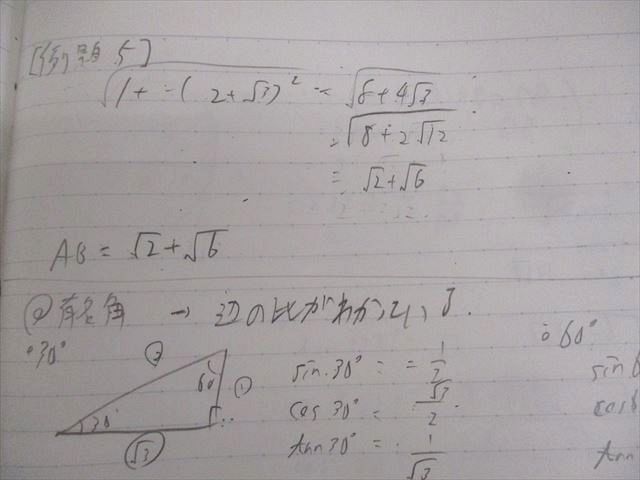 [例題 5]
√1+(2+√3)² = √8+4√3
= √8+2√12
= √2+√6
AB = √2+√6
有名角 → 辺の比がわかっている.
°30°
② 60° ①
30°
√3
sin 30° = 1/2
cos 30° = √3/2
tan 30° = 1/√3
°60°
sin 6
cos 6
tan